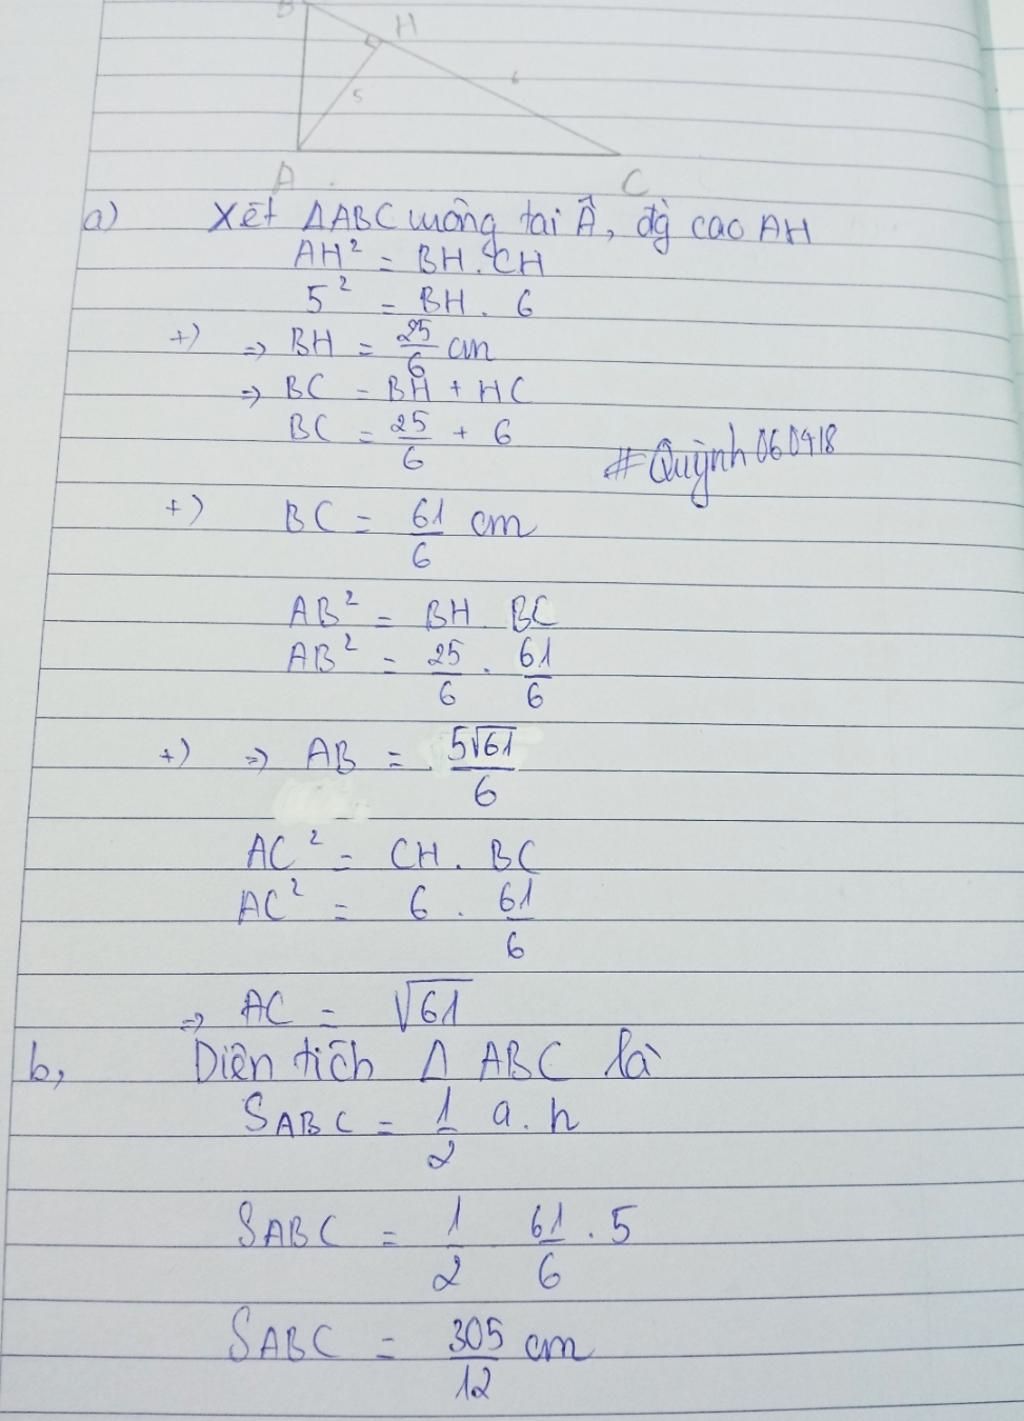 B
H
6
5
A
C
a) Xét ΔABC vuông tại Â, đg cao AH
AH² = BH. CH
5² = BH. 6
+) => BH = 25/6 cm
=> BC = BH + HC
BC = 25/6 + 6
#Quỳnh060418
+) BC = 61/6 cm
AB² = BH. BC
AB² = 25/6 . 61/6
+) => AB = 5√61/6
AC² = CH. BC
AC² = 6 . 61/6
=> AC = √61
b, Diện tích Δ ABC là
SABC = 1/2 a. h
SABC = 1/2 61/6 . 5
SABC = 305/12 cm